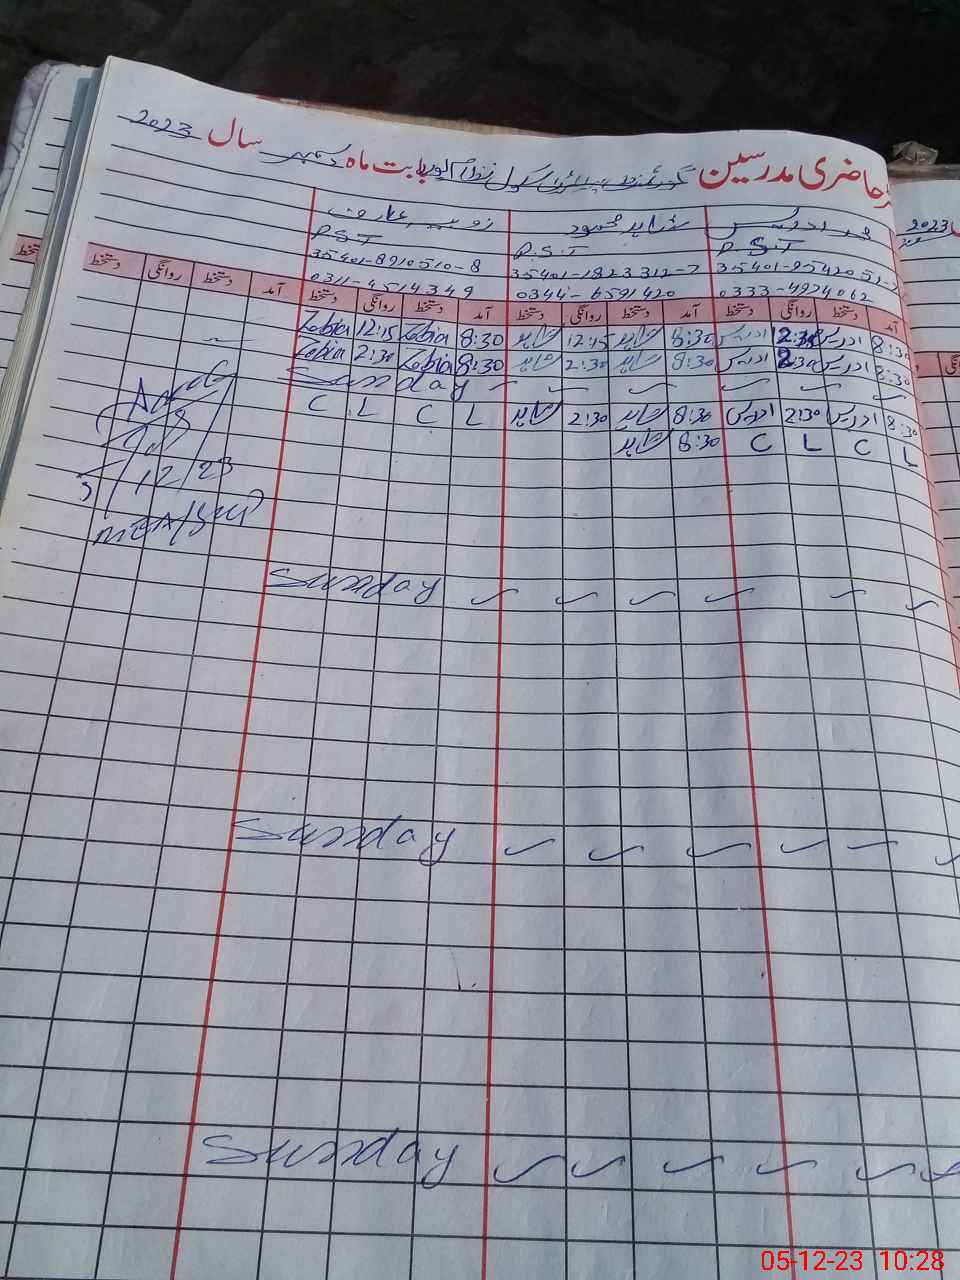 حاضری مدرسین گورنمنٹ پرائمری سکول بابت ماہ دسمبر سال 2023
محمد ادریس شاہد محمود زوبیہ عارف
P.S.T P.S.T P.S.T
35401-1823312-7 35401-8910510-8
0333-4924062 0344-6591420 0311-4514349
آمد دستخط روانگی دستخط آمد دستخط روانگی دستخط آمد دستخط روانگی دستخط آمد دستخط روانگی دستخط
8:30 ادریس 2:30 ادریس 8:30 شاہد 12:15 شاہد 8:30 Zobia 12:15 Zobia
8:30 ادریس 2:30 ادریس 8:30 شاہد 2:30 شاہد 8:30 Zobia 2:30 Zobia
Sunday
8:30 ادریس 2:30 ادریس 8:30 شاہد 2:30 شاہد L C L C
L C L C 8:30 شاہد
5/12/23
Sunday
Sunday
Sunday
2023
دستخط
05-12-23 10:28